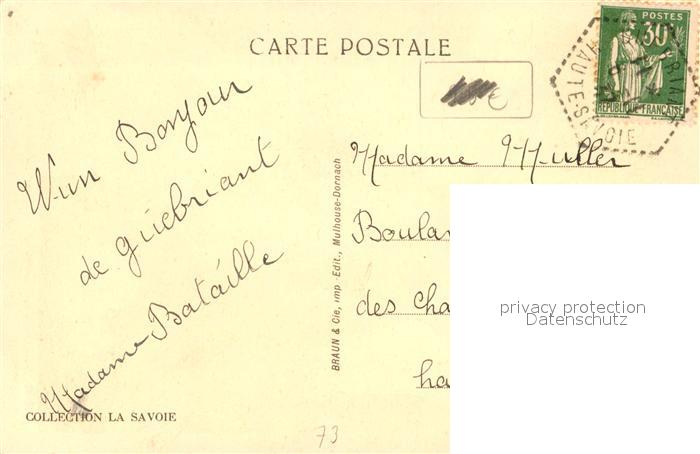 CARTE POSTALE
POSTES
30
REPUBLIQUE FRANÇAISE
HAUTE-SAVOIE
Bonjour
de Guébriant
Madame Bataille
COLLECTION LA SAVOIE
BRAUN & Cie, imp Edit., Mulhouse-Dornach
Madame Muller
Boula
des Cha
ha
privacy protection
Datenschutz
73